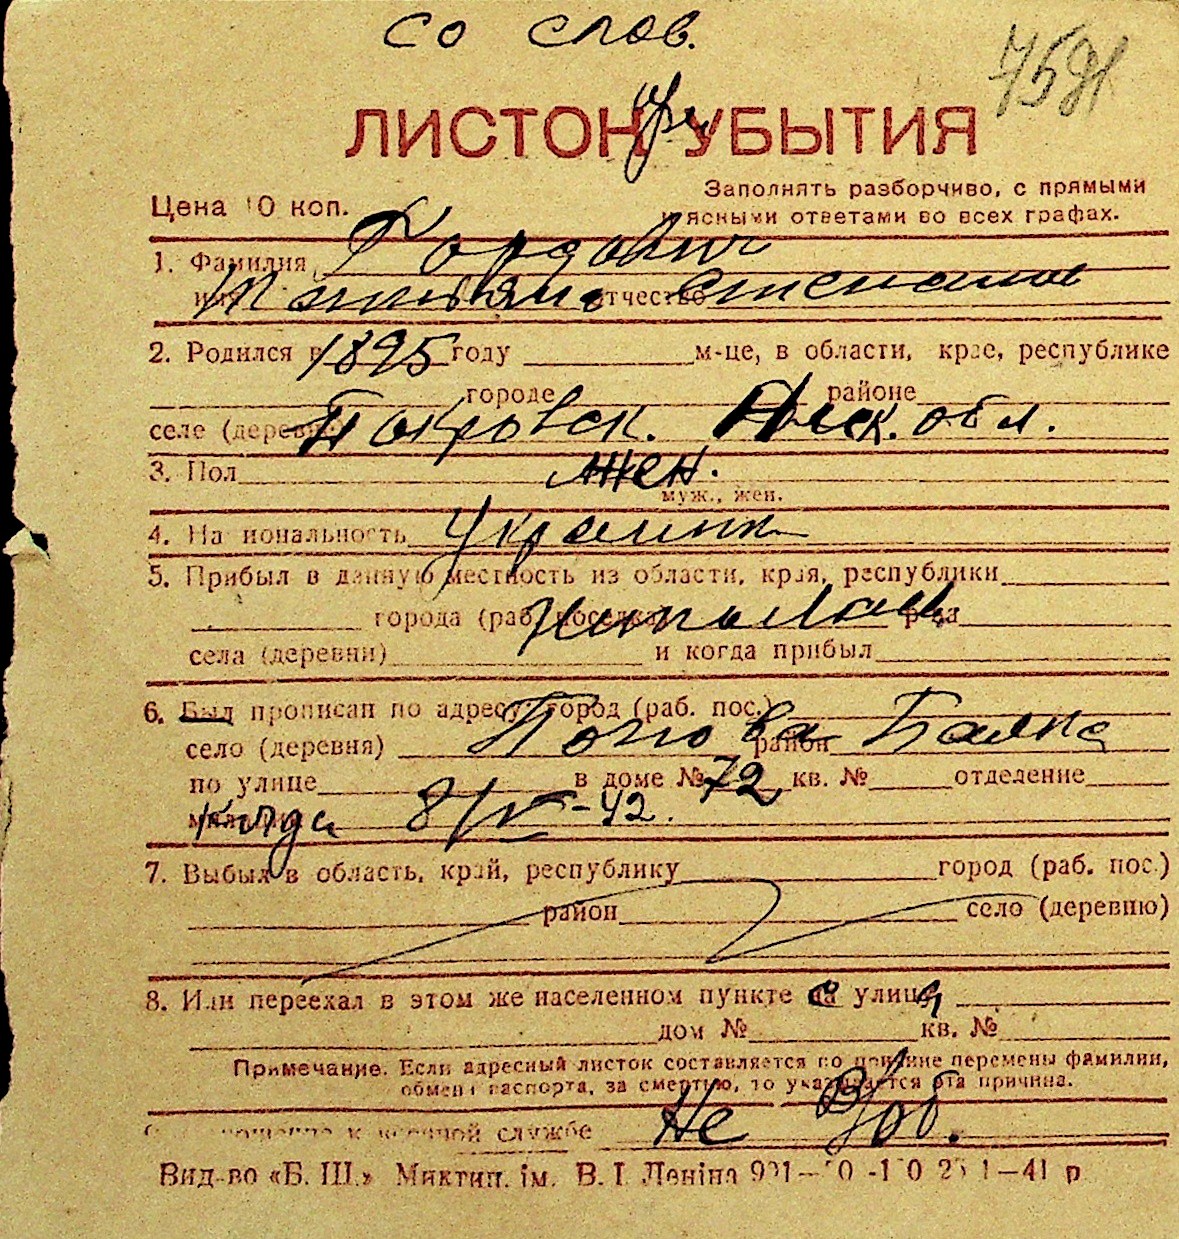 со слов.
ЛИСТОК УБЫТИЯ
Цена 10 коп.
Заполнять разборчиво, с прямыми
и ясными ответами во всех графах.
1. Фамилия Гордович
имя Татьяна отчество Степанов
2. Родился в 1895 году м-це, в области, крае, республике
городе районе
селе (деревне) Покровск. обл.
3. Пол жен.
муж., жен.
4. Национальность Украинк
5. Прибыл в данную местность из области, края, республики
города (раб. поселка) р-на
села (деревни) и когда прибыл
6. Был прописан по адресу: город (раб. пос.)
село (деревня) Попова район Балка
по улице в доме № 72 кв. № отделение
милиции Куда 8/IV-42.
7. Выбыл в область, край, республику город (раб. пос.)
район село (деревню)
8. Или переехал в этом же населенном пункте на улицу
дом № кв. №
Примечание. Если адресный листок составляется по причине перемены фамилии,
обмена паспорта, за смертью, то указывается эта причина.
к военной службе Не
Вид-во «Б. Ш.» Миктип. ім. В. І. Леніна 41 р